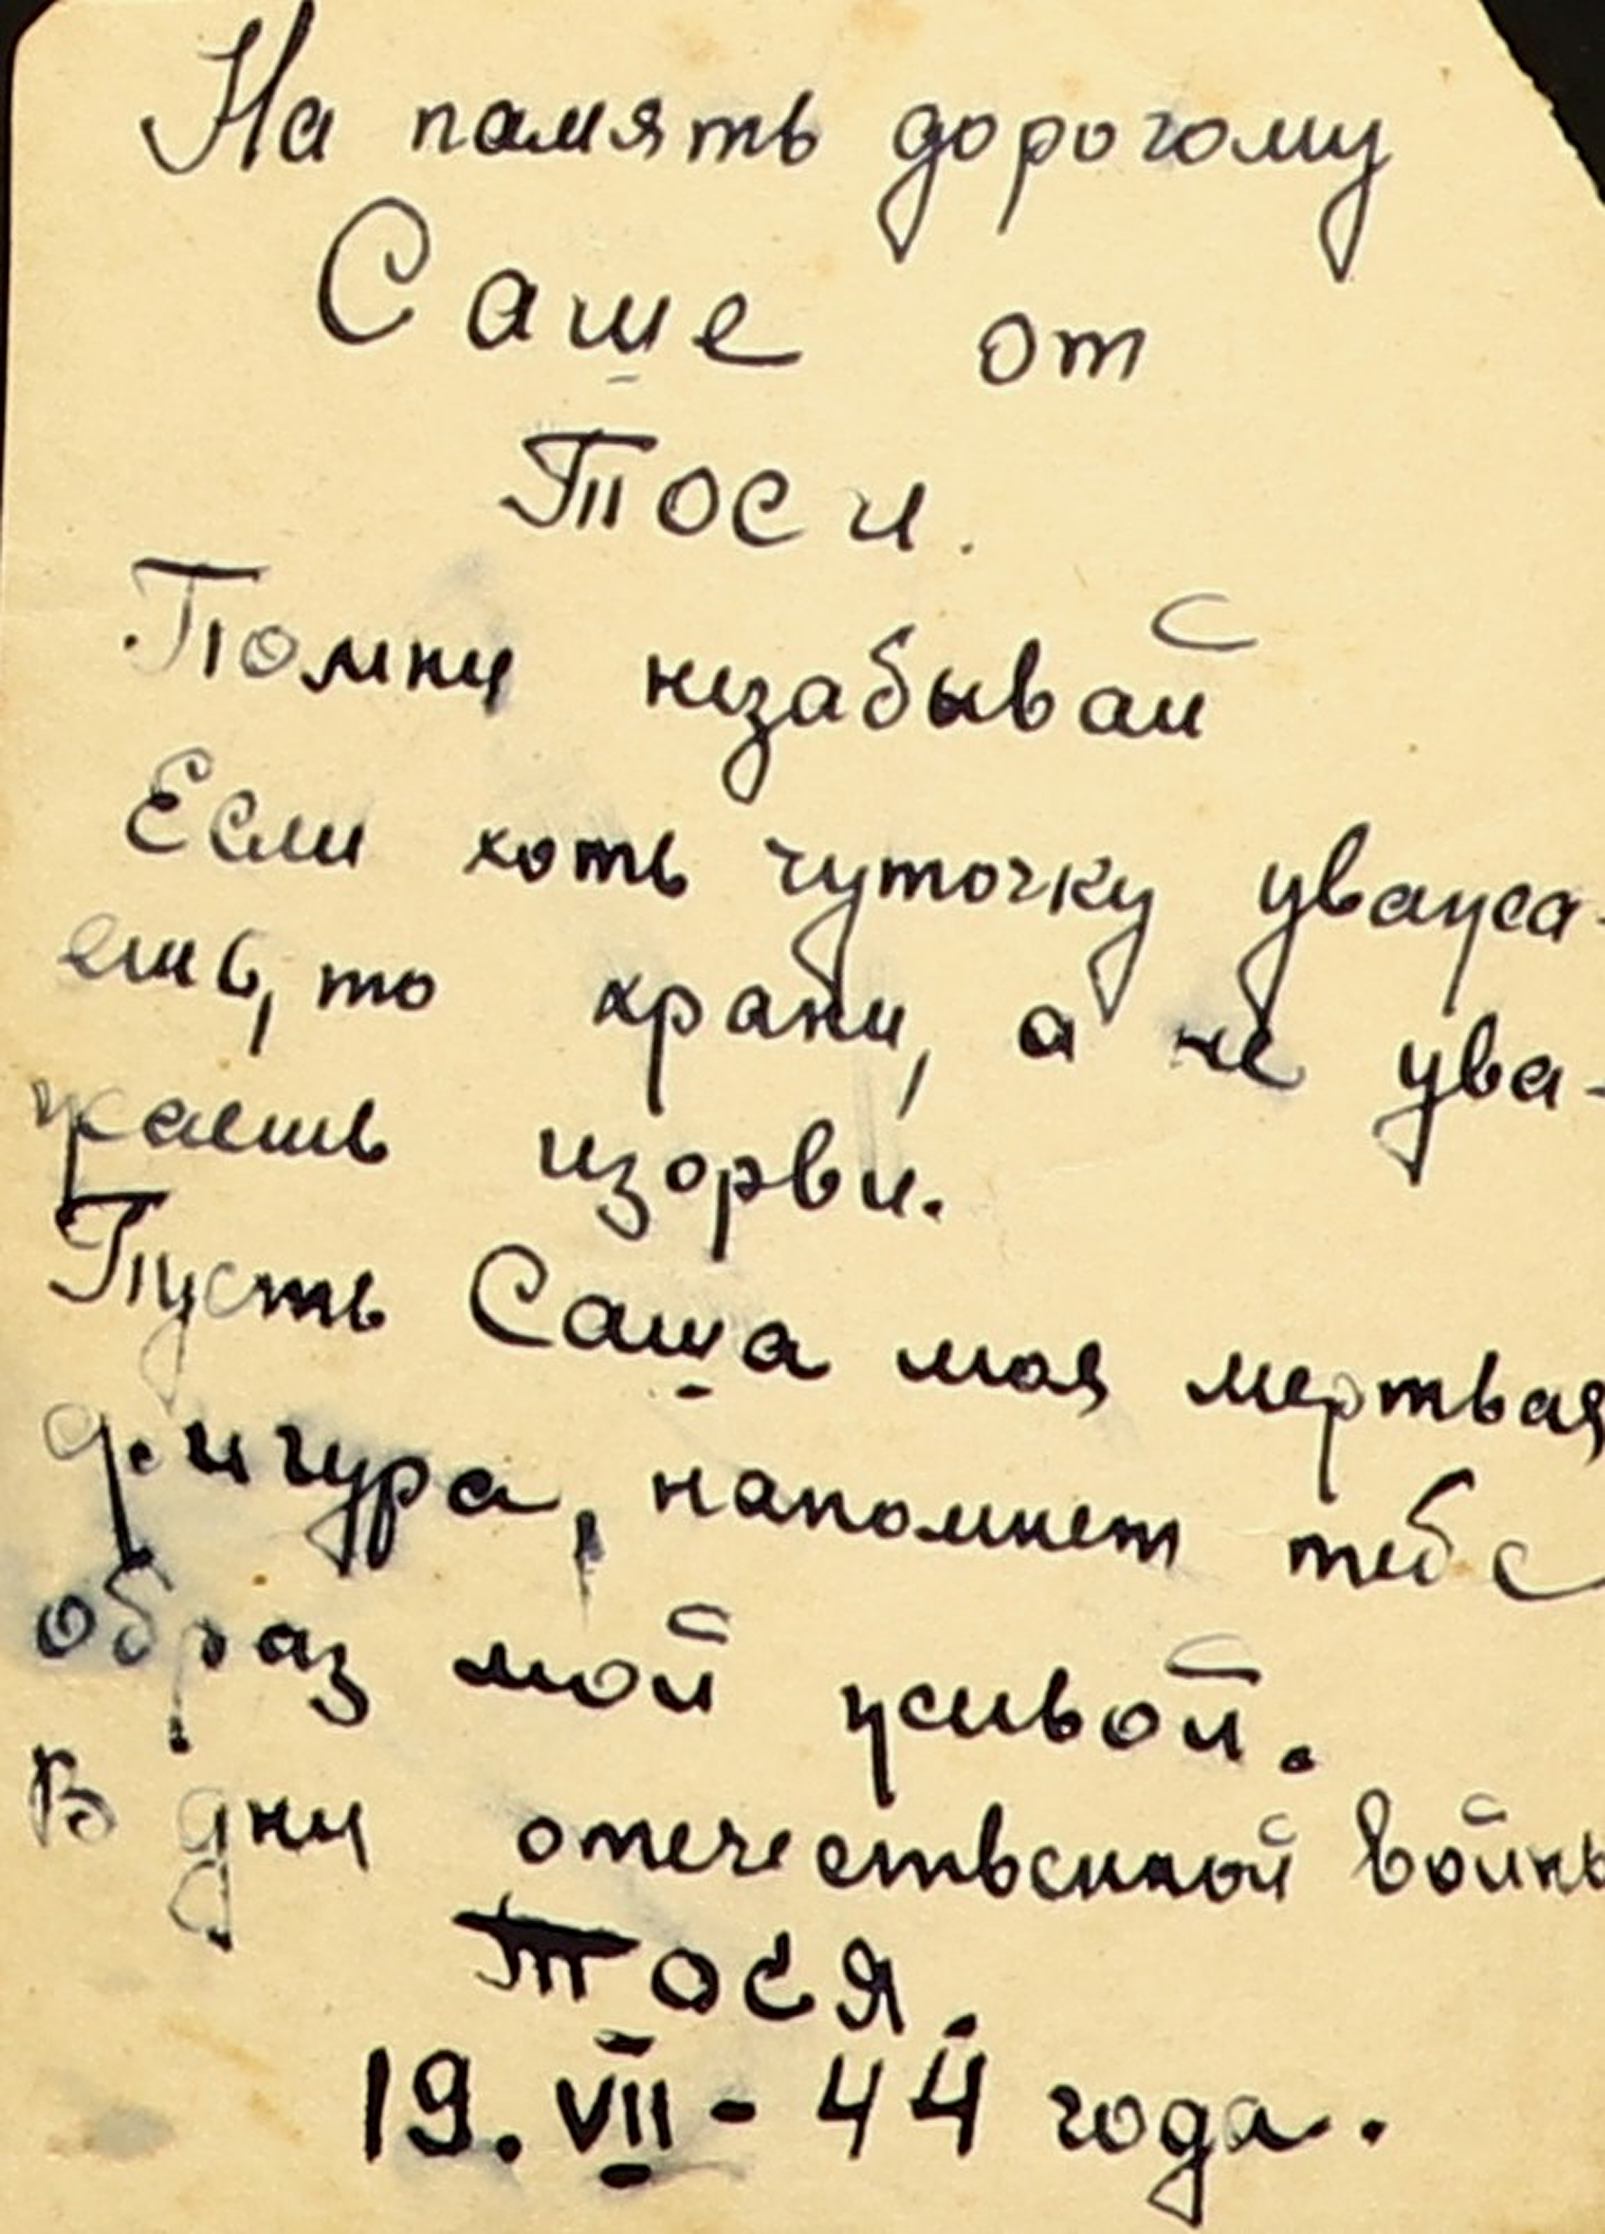 На память дорогому
Саше от
Тоси.
Помни незабывай
Если хоть чуточку уважа-
ешь, то храни, а не ува-
жаешь изорви.
Пусть Саша моя мертвая
фигура, напомнет тебе
образ мой живой.
В дни отечественной войны
Тося.
19. VII - 44 года.